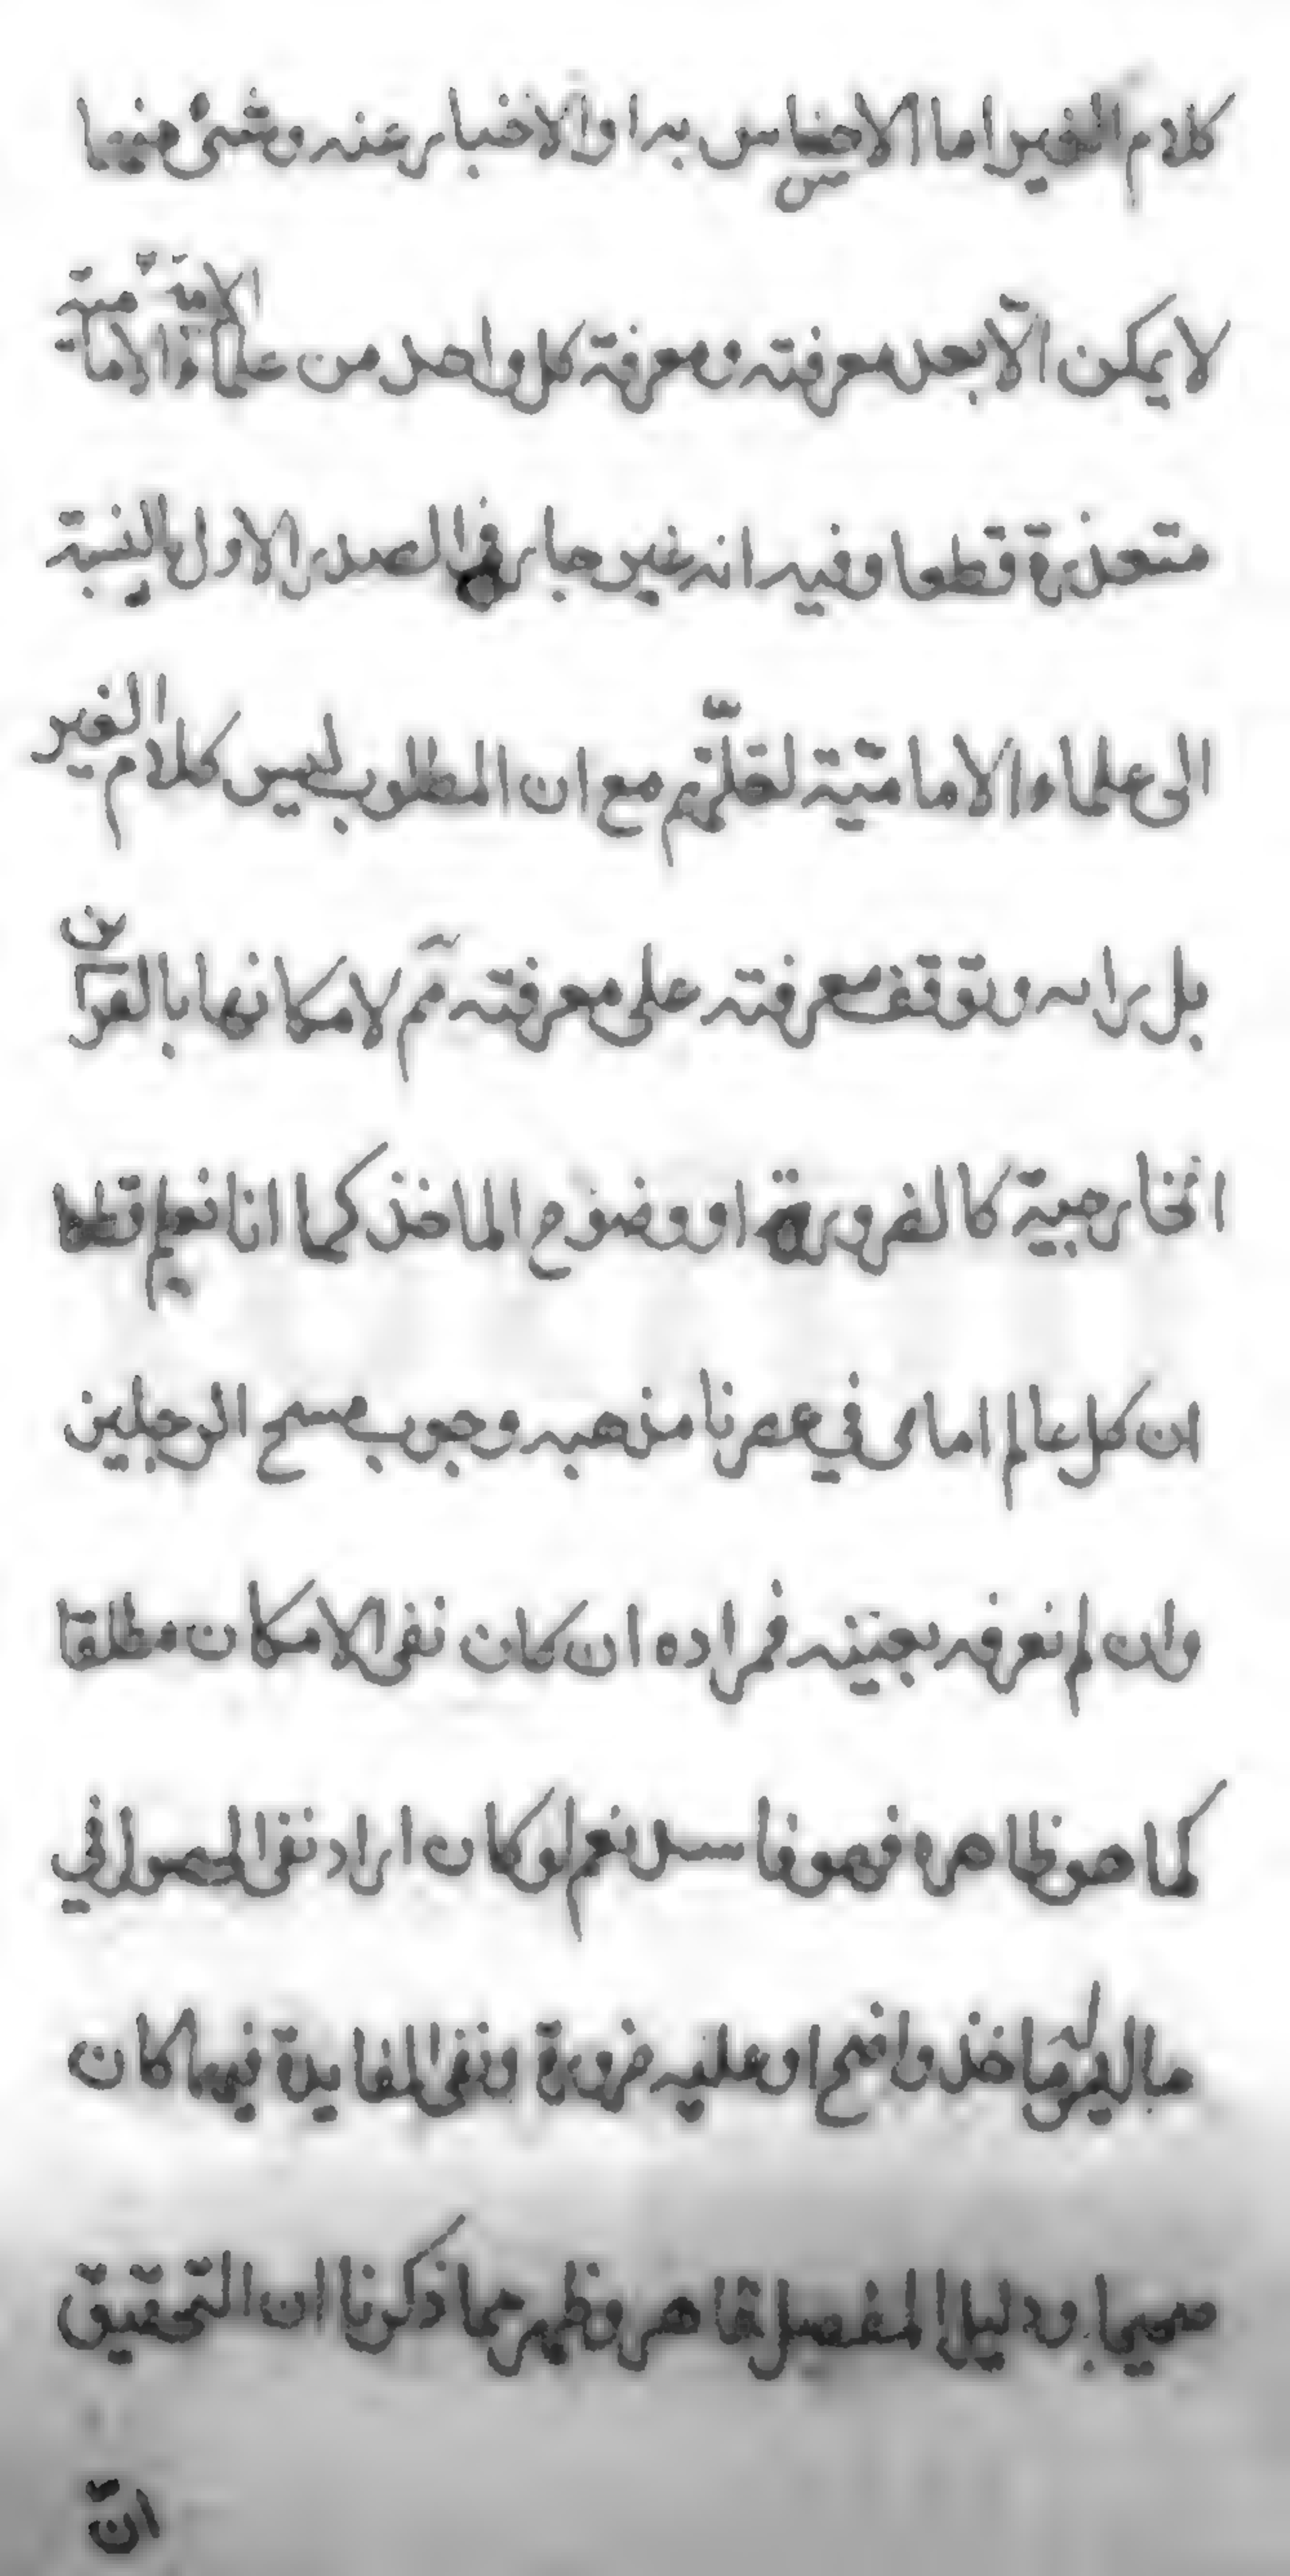 كلام الغير اما الاحساس به او الاخبار عنه وشئ منهما
لا يمكن الا بعد معرفته ومعرفة كل واحد من علماء الامامية
متعذرة قطعا وفيه انه غير جار في الصدر الاول بالنسبة
الى علماء الاماميّة لقلّتهم مع ان المطلوب ليس كلام الغير
بل رايه وتوقف معرفته على معرفته ثم لامكانها بالقرائن
الخارجية كالضرورة او وضوح الماخذ كما انا نعلم قطعا
ان كل عالم امامى في عصرنا مذهبه وجوب مسح الرجلين
وان لم نعرفه بعينه فمراده ان كان نفى الامكان مطلقا
كما هو ظاهره فهو فاسد نعم لو كان اراد نفى الحصول في
ما ليس ماخذ واضح ان عليه ضرورة ونفى الفايدة فيما كان
مصيبا ودليل المفصل قاصر وظهر مما ذكرنا ان التحقيق
انّ